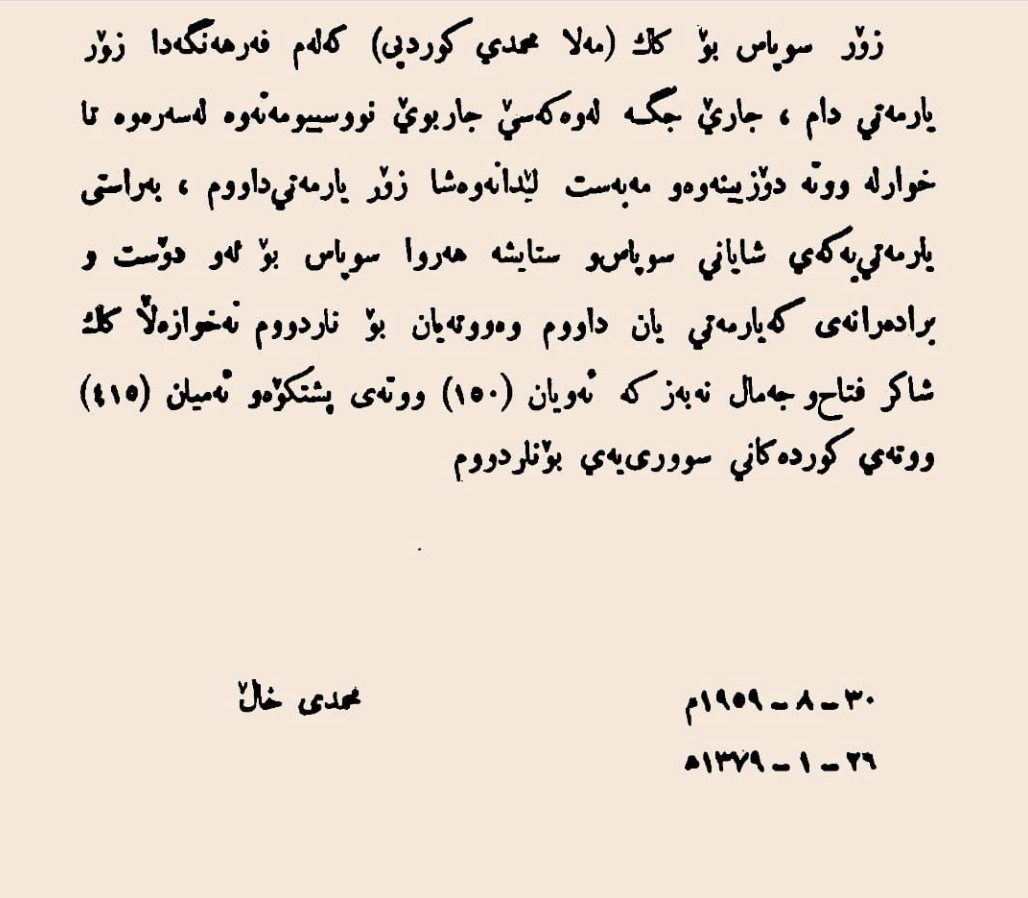 زۆر سوپاس بۆ كاك (مەلا محمدي كوردیی) كەلەم فەرهەنگەدا زۆر
یارمەتي دام ، جارێ جگـە لەوەكەسێ جاربوێ نووسییومەتەوە لەسەرەوە تا
خوارلە ووتە دۆزیینەوەو مەبەست لێدانەوەشا زۆر یارمەتي‌داووم ، بەراستی
یارمەتي‌یەكەي شایاني سوپاس‌و ستایشە هەروا سوپاس بۆ ئەو دۆست و
برادەرانەی كەیارمەتي یان داووم وەووتەیان بۆ ناردووم نەخوازەڵا كاك
شاكر فتاح‌و جەمال نەبەز كە ئەویان (١٥٠) ووتەی پشتكۆەو ئەمیان (٤١٥)
ووتەي كوردەكاني سووری‌یەي بۆناردووم
٣٠ ـ ٨ ـ ١٩٥٩م
محمدی خاڵ
٢٦ ـ ١ ـ ١٣٧٩ه